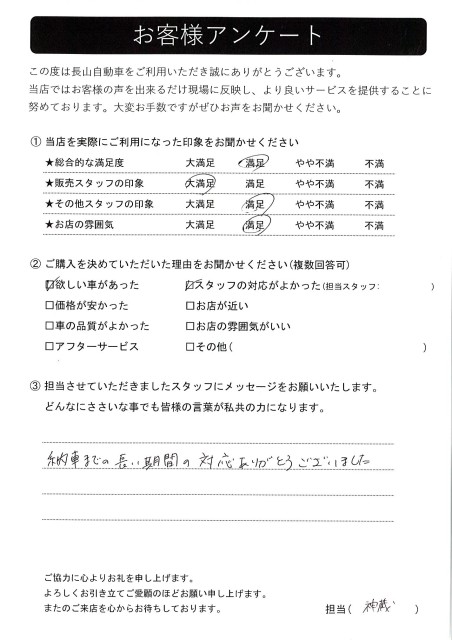 お客様アンケート
この度は長山自動車をご利用いただき誠にありがとうございます。
当店ではお客様の声を出来るだけ現場に反映し、より良いサービスを提供することに
努めております。大変お手数ですがぜひお声をお聞かせください。
① 当店を実際にご利用になった印象をお聞かせください
★総合的な満足度 大満足 満足 やや不満 不満
★販売スタッフの印象 大満足 満足 やや不満 不満
★その他スタッフの印象 大満足 満足 やや不満 不満
★お店の雰囲気 大満足 満足 やや不満 不満
② ご購入を決めていただいた理由をお聞かせください(複数回答可)
☑欲しい車があった ☑スタッフの対応がよかった(担当スタッフ: )
□価格が安かった □お店が近い
□車の品質がよかった □お店の雰囲気がいい
□アフターサービス □その他( )
③ 担当させていただきましたスタッフにメッセージをお願いいたします。
どんなにささいな事でも皆様の言葉が私共の力になります。
納車までの長い期間の対応ありがとうございました
ご協力に心よりお礼を申し上げます。
よろしくお引き立てご愛顧のほどお願い申し上げます。
またのご来店を心からお待ちしております。 担当( 神蔵 )